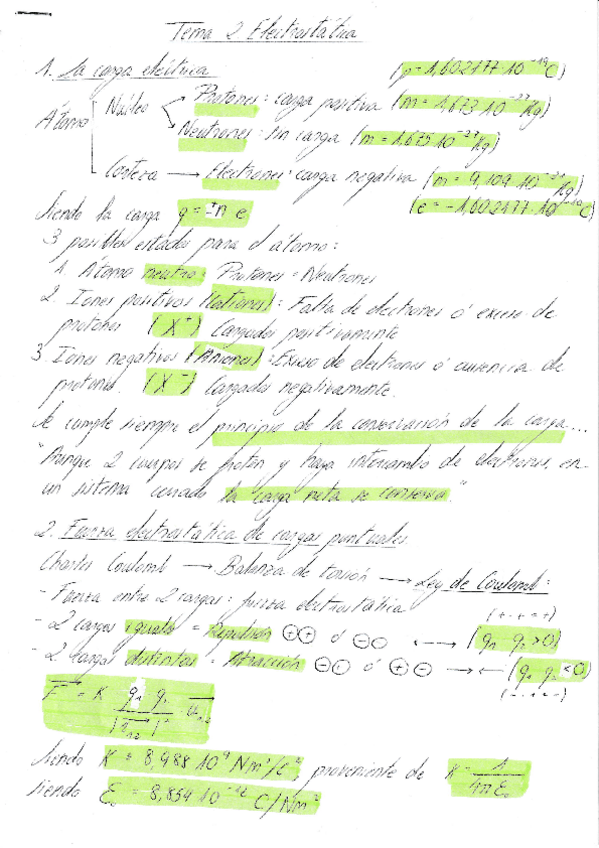 Tema 2 Electrostática
1. La carga eléctrica (p = 1,602177·10⁻¹⁹ C)
Átomo Núcleo Protones: carga positiva (m = 1,673·10⁻²⁷ Kg)
Neutrones: sin carga (m = 1,675·10⁻²⁷ Kg)
Corteza → Electrones: carga negativa (m = 9,109·10⁻³¹ Kg)
Siendo la carga q = ±n e (e = -1,602177·10⁻¹⁹ C)
3 posibles estados para el átomo:
1. Átomo neutro: Protones = Neutrones
2. Iones positivos (Cationes): Falta de electrones ó exceso de
protones (X⁺) Cargados positivamente
3. Iones negativos (Aniones): Exceso de electrones ó ausencia de
protones. (X⁻) Cargados negativamente.
Se cumple siempre el principio de la conservación de la carga...
"Aunque 2 cuerpos se froten y haya intercambio de electrones, en
un sistema cerrado la carga neta se conserva."
2. Fuerza electrostática de cargas puntuales
Charles Coulomb → Balanza de torsión → Ley de Coulomb:
- Fuerza entre 2 cargas: fuerza electrostática
(+·+=+)
- 2 cargas iguales = Repulsión ⊕⊕ ó ⊖⊖ ←→ (q₁·q₂>0)
- 2 cargas distintas = Atracción ⊕⊖ ó ⊖⊕ →← (q₁·q₂<0)
(-·+=-)
F = K q₁·q₂ / |r₁₂|² · u₁₂
Siendo K = 8,988·10⁹ Nm²/C², proveniente de K = 1/4πε₀
siendo ε₀ = 8,854·10⁻¹² C/Nm²